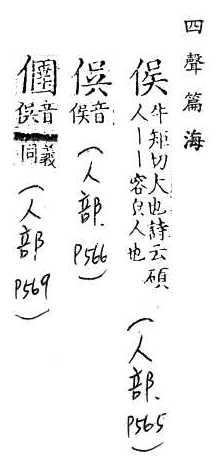 四聲篇海
俣 牛矩切大也詩云碩
人丨丨容皃人也
(人部 P565)
俁 音
俣
(人部 P566)
音
俣
義
同
(人部 P569)